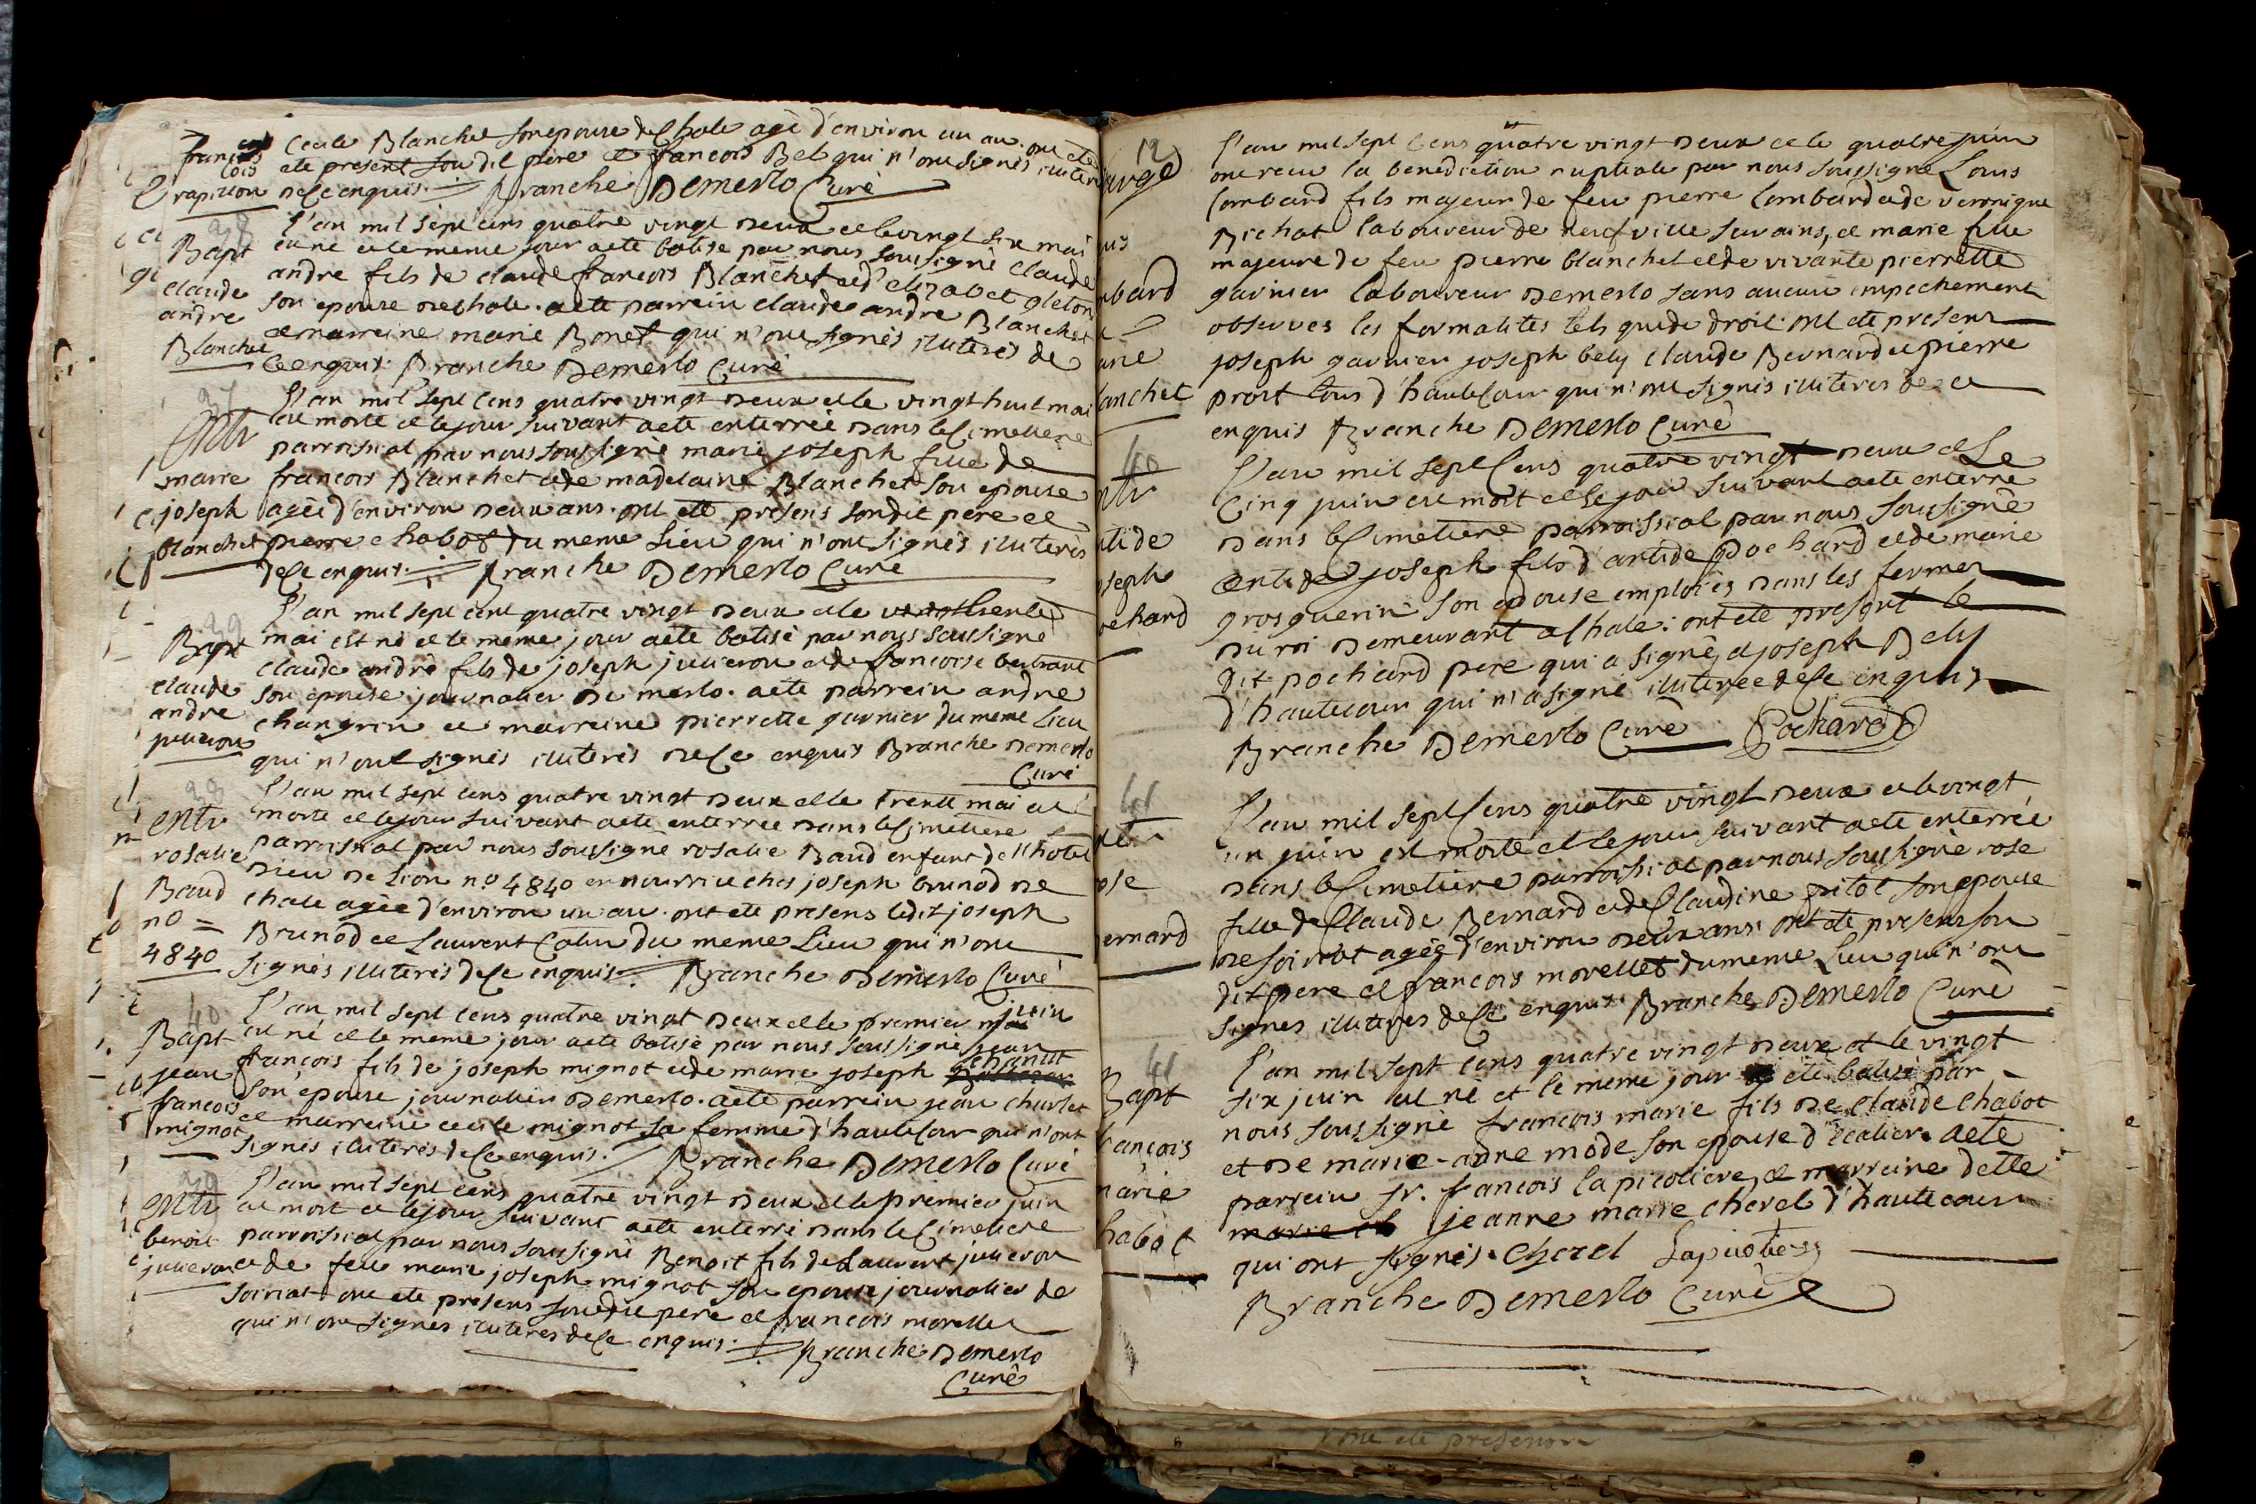 françois
lois
Crapillon
Cecile Blanchet son epouse de Chale agé d'environ un an. ont ete
ete present son dit père et francois Bel qui n'ont signés illiteré
de ce enquis. Branche Demerlo Curé
38
Bapt
claude
andre
Blanchet
l'an mil sept cens quatre vingt deux et le vingt six mai
est né et le meme jour a ete batisé par nous soussigné claude
andre fils de claude francois Blanchet et d'elizabet gleton
son epouse de chale. a ete parrein claude andre Blanchet
et marreine marie Bonet qui n'ont signés illiterés de
ce enquis. Branche Demerlo Curé
37
entr
marie
joseph
blanchet
l'an mil sept cens quatre vingt deux et le vingt huit mai
est morte et le jour suivant a ete enterreé dans le Cimetiere
parroissial par nous soussigné marie joseph fille de
francois Blanchet et de madelaine Blanchet son epouse
ageé d'environ deux ans. ont eté presens son dit pere et
pierre chabot du meme Lieu qui n'ont signés illiterés
de Ce enquis. Branche Demerlo Curé
39
Bapt
claude
andre
juilleron
l'an mil sept cent quatre vingt deux et le trente
mai est né et le meme jour a ete batisé par nous soussigné
claude andré fils de joseph juilleron et de francoise bertrand
son epouse journalier de merlo. a ete parrein andre
changrin et marreine pierrette garnier du meme Lieu
qui n'ont signés illiterés de Ce enquis Branche Demerlo
Curé
38
entr
rosalie
Baud
no =
4840
l'an mil sept cens quatre vingt deux et le trente mai est
morte et le jour suivant a ete enterreé dans le Cimetiere
parroissial par nous soussigné rosalie Baud enfant de l'hotel
dieu de Lion no 4840 en nourrice ches joseph brunod de
chale ageé d'environ un an. ont ete presens ledit joseph
Brunod et Laurent Colin du meme Lieu qui n'ont
signés illiterés de Ce enquis. Branche Demerlo Curé
40
Bapt
jean
francois
mignot
l'an mil sept cens quatre vingt deux et le premier juin
est né et le meme jour a ete batisé par nous soussigné jean
françois fils de joseph mignot et de marie joseph chanut
son epouse journalier Demerlo. a ete parrein jean churlet
et marreine cecile mignot sa femme d'hautecour qui n'ont
signés illiterés de Ce enquis. Branche Demerlo Curé
39
entr
benoit
juilleron
l'an mil sept cens quatre vingt deux et le premier juin
est mort et le jour suivant a ete enterré dans le Cimetiere
parroissial par nous soussigné Benoit fils de Laurent juilleron
et de feu marie joseph mignot son epouse journalier de
soiriat ont ete presens son dit pere et francois morellet
qui n'ont signés illiterés de Ce enquis. Branche Demerlo
Curé
12
l'an mil sept Cens quatre vingt deux et le quatre juin
ont recu la benediction nuptiale par nous soussigné Louis
Lombard fils majeur de feu pierre Lombard et de veronique
Bichat laboureur de neufville sur ains, et marie fille
majeure de feu pierre blanchet et de vivante pierrette
garnier laboureur Demerlo sans aucun empechement
observés les formalités tels que de droit. ont ete presens
joseph garnier joseph bely claude Bernard et pierre
prost tous d'hautecour qui n'ont signés illiterés de ce
enquis Branche Demerlo Curé
40
l'an mil sept Cens quatre vingt deux et Le
Cinq juin est mort et le jour suivant a ete enterré
dans le Cimetiere parroissial par nous soussigné
antide joseph fils d'antide Pochard et de marie
grosguerin son epouse emploiés dans les fermes
du roi demeurant a Chale: ont ete present le
dit pochard pere qui a signé, et joseph Bely
d'hautecour qui n'a signé illiteré de Ce enquis
Branche Demerlo Curé Pochard
41
l'an mil sept Cens quatre vingt deux et le vingt
un juin est morte et le jour suivant a ete enterreé
dans le Cimetiere parroissial par nous soussigné rose
fille de Claude Bernard et de Claudine pitot son epouse
de soiriat ageé d'environ deux ans. ont ete presens son
dit pere et francois morellet du meme Lieu qui n'ont
signés illiterés de Ce enquis Branche Demerlo Curé
41
Bapt
françois
marie
habot
l'an mil sept cens quatre vingt deux et le vingt
six juin est né et le meme jour a eté batisé par
nous soussigné françois marie fils de claude Chabot
et de marie-anne mode son epouse d'ecaliere a ete
parrein sr. françois lapicotiere, et marreine delle
marie ch jeanne marie cherel d'hautecour
qui ont signés. Cherel Lapicotiere
Branche Demerlo Curé